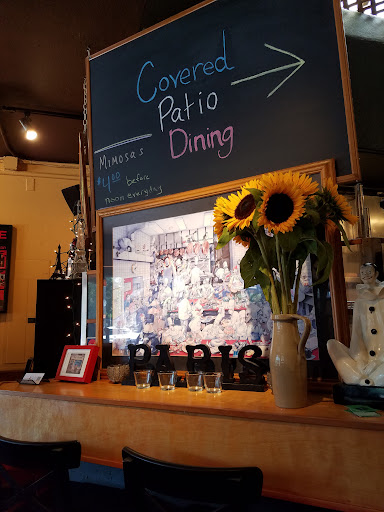 Covered
Patio
Dining
MIMOSA'S
$4.00 before
noon everyday
PARIS